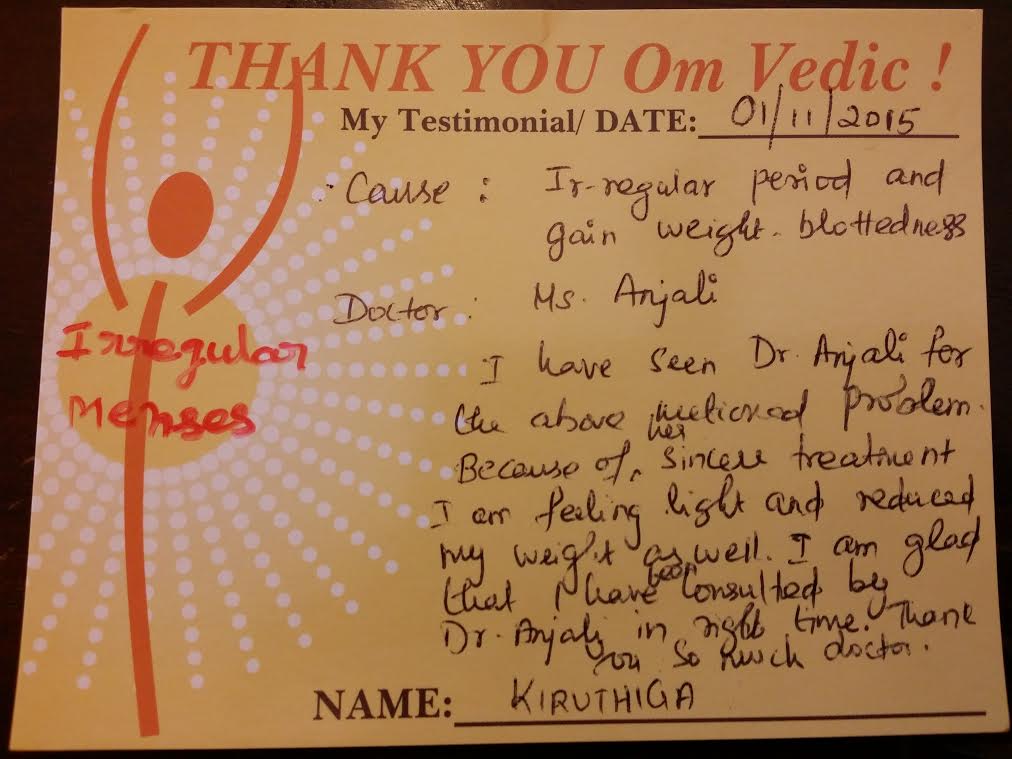 THANK YOU Om Vedic !
My Testimonial/ DATE: 01/11/2015
Cause : Ir-regular period and
gain weight. blottedness
Doctor : Ms. Anjali
Irregular
Menses
I have seen Dr. Anjali for
the above metioned problem.
Because of her sincere treatment
I am feeling light and reduced
my weight as well. I am glad
that I have been consulted by
Dr. Anjali in right time. Thank
you so much doctor.
NAME: KIRUTHIGA